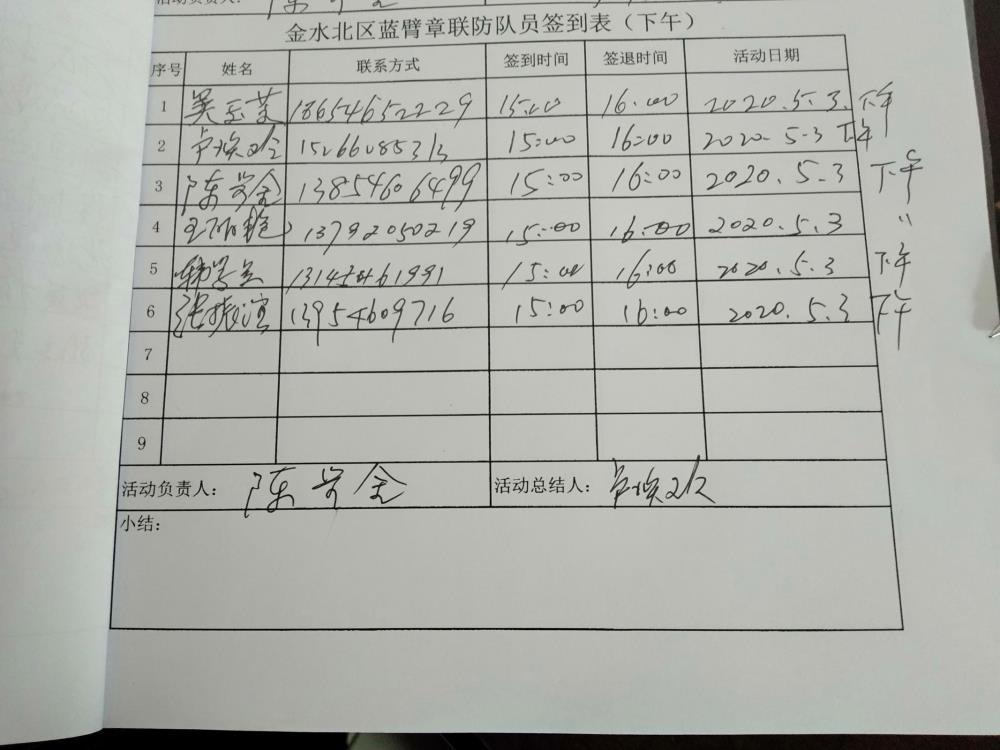 活动负责人：
金水北区蓝臂章联防队员签到表（下午）
序号 姓名 联系方式 签到时间 签退时间 活动日期
1 吴玉英 18654652229 15:00 16:00 2020.5.3. 下午
2 15266085313 15:00 16:00 2020.5.3 下午
3 陈安金 13854606499 15:00 16:00 2020.5.3 下午
4 13792050219 15:00 16:00 2020.5.3 "
5 15:00 16:00 2020.5.3 下午
6 张振滨 13954609716 15:00 16:00 2020.5.3 下午
7
8
9
活动负责人： 陈安金 活动总结人：
小结：